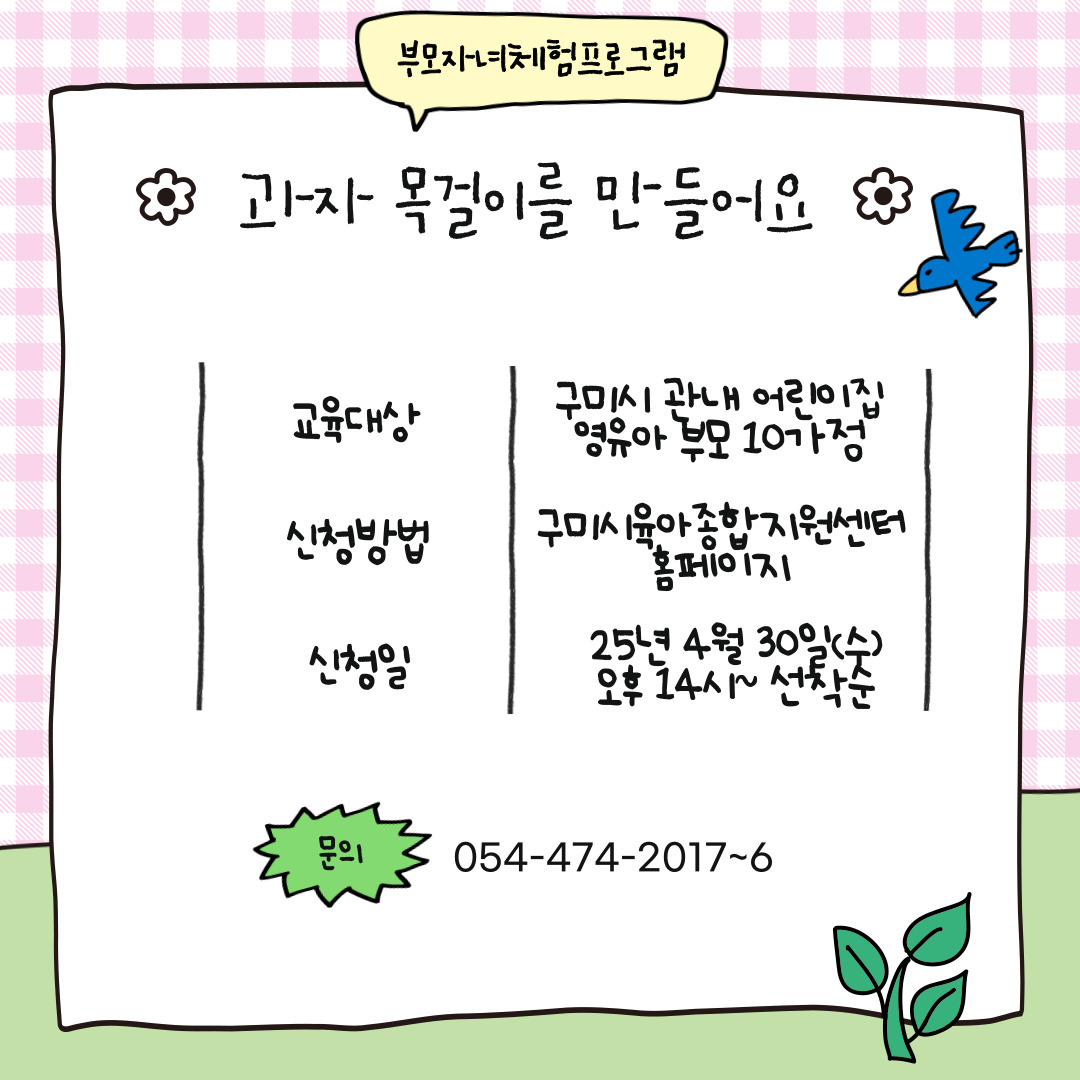 부모자녀체험프로그램
과자 목걸이를 만들어요
교육대상
구미시 관내 어린이집
영유아 부모 10가정
신청방법
구미시육아종합지원센터
홈페이지
신청일
25년 4월 30일(수)
오후 14시~ 선착순
문의
054-474-2017~6